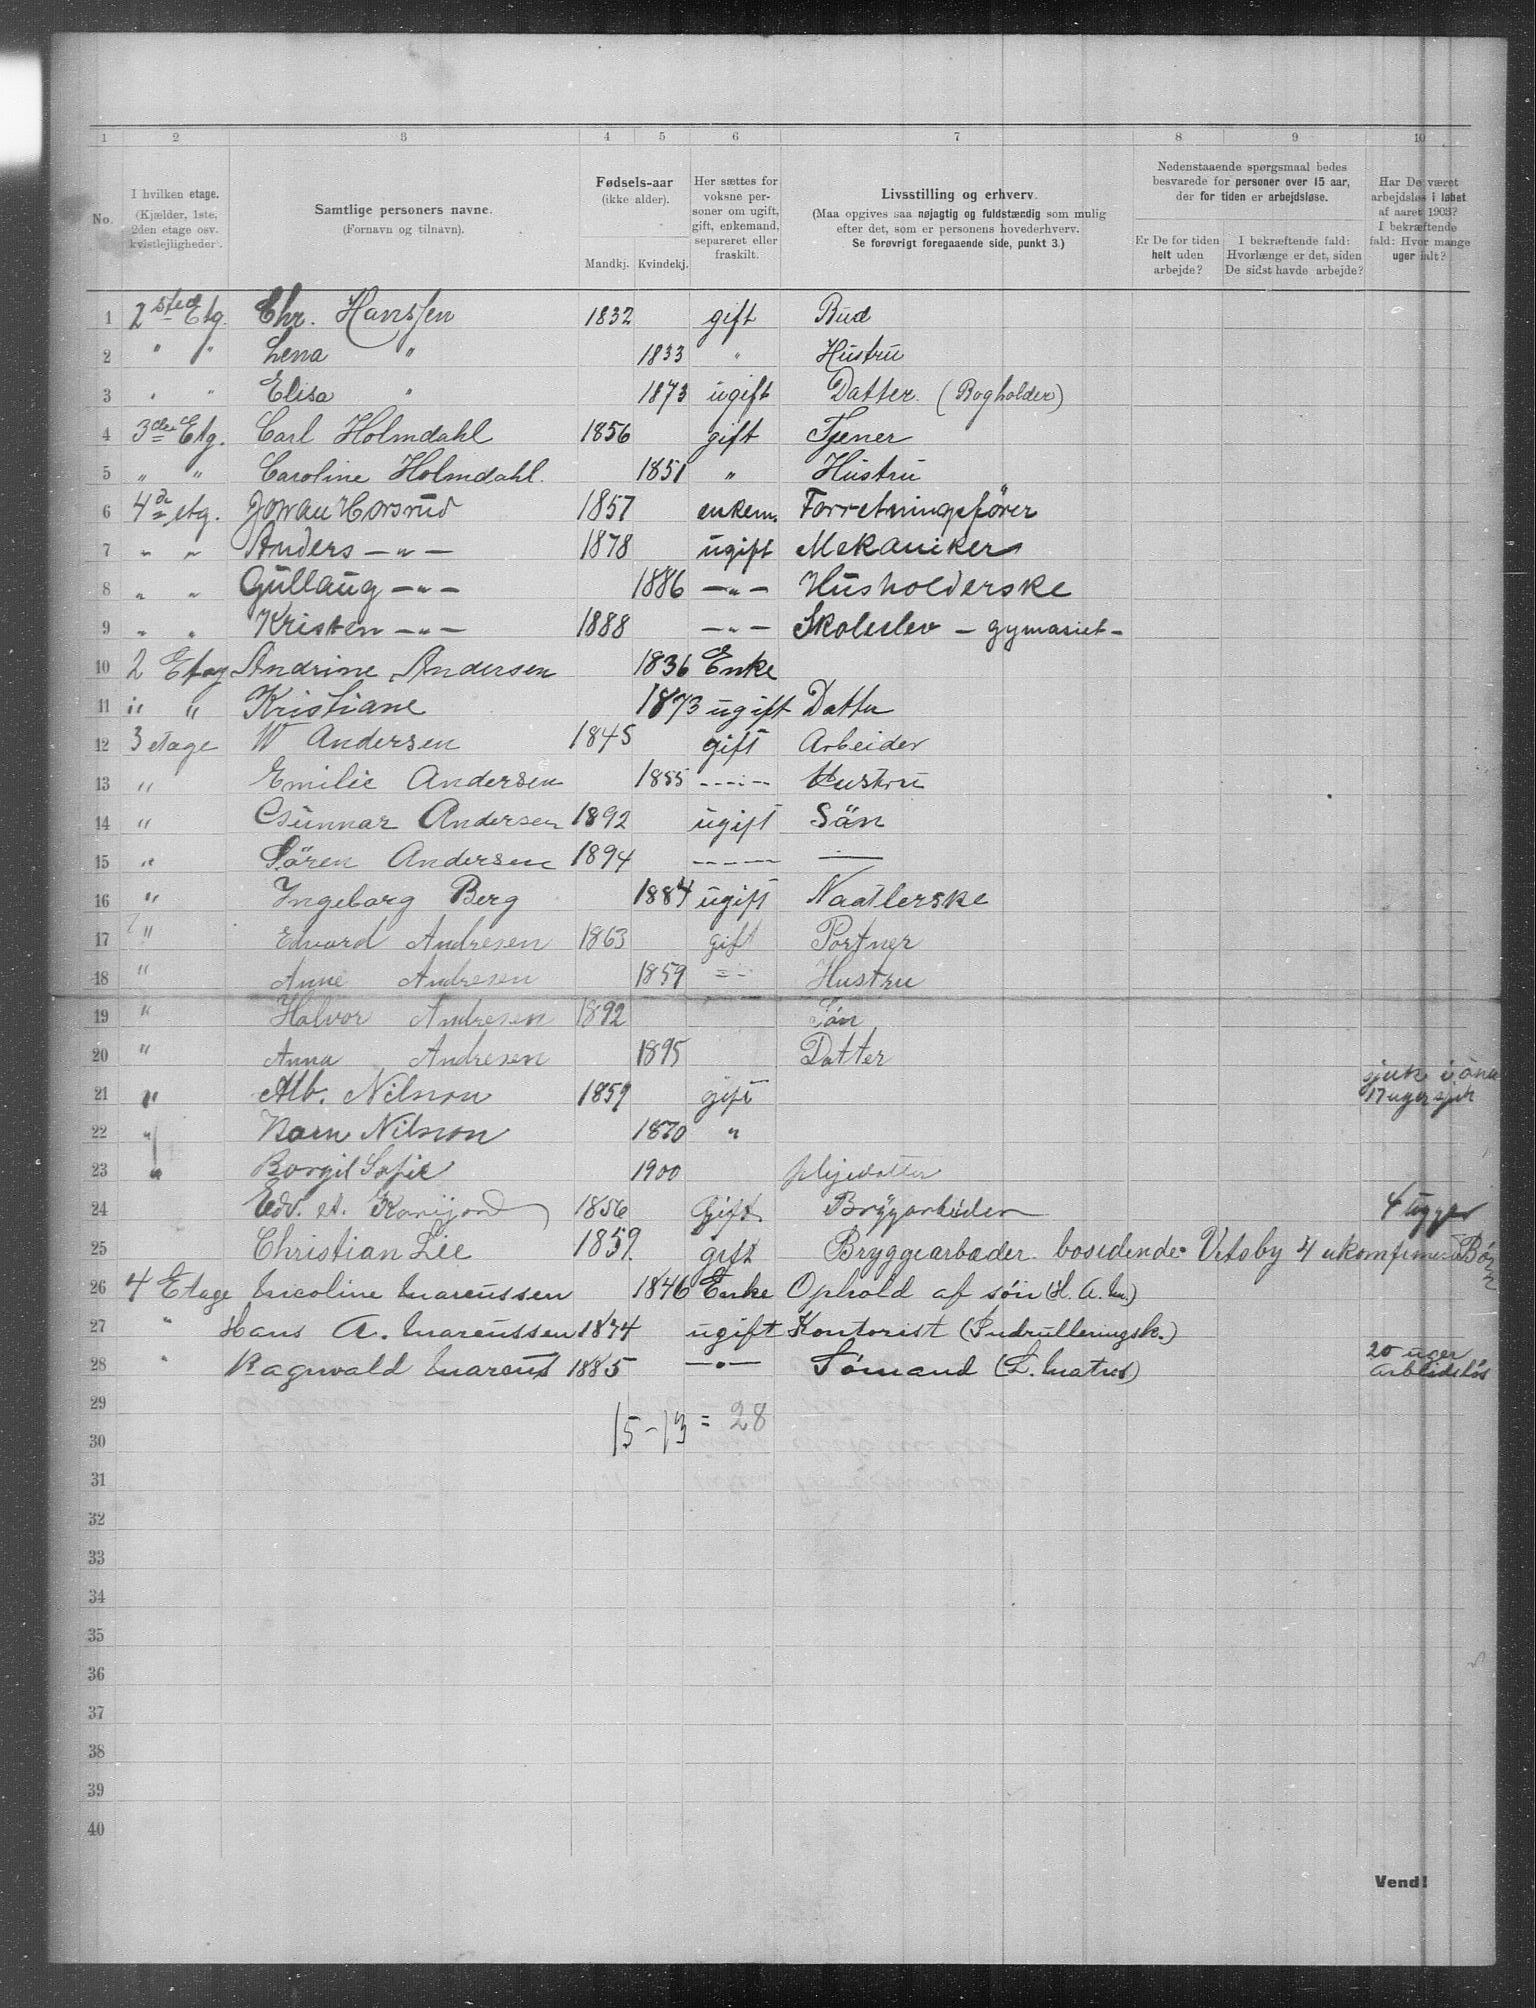 1 2 3 4 5 6 7 8 9 10
No.
I hvilken etage. (Kjælder, 1ste, 2den etage osv. kvistlejligheder).
Samtlige personers navne. (Fornavn og tilnavn).
Fødsels-aar (ikke alder). Mandkj. Kvindekj.
Her sættes for voksne personer om ugift, gift, enkemand, separeret eller fraskilt.
Livsstilling og erhverv. (Maa opgives saa nøjagtig og fuldstændig som mulig efter det, som er personens hovederhverv. Se forøvrigt foregaaende side, punkt 3.)
Nedenstaaende spørgsmaal bedes besvarede for personer over 15 aar, der for tiden er arbejdsløse.
Er De for tiden helt uden arbejde?
I bekræftende fald: Hvorlænge er det, siden De sidst havde arbejde?
Har De været arbejdsløs i løbet af aaret 1903? I bekræftende fald: Hvor mange uger ialt?
1 2 Etg. Chr. Hanssen 1832 gift Bud
2 " " Lena " 1833 " Hustru
3 " " Elisa " 1873 ugift Datter. (Bogholder)
4 3die Etg. Carl Holmdahl 1856 gift Tjener
5 " " Caroline Holmdahl. 1851 " Hustru
6 4de etg. Johan Horsrud 1857 enkem. Forretningsfører
7 " " Anders —"— 1878 ugift Mekaniker
8 " " Gullaug —"— 1886 —"— Husholderske
9 " " Kristen —"— 1888 —"— Skoleelev — gymasiet —
10 2 Etag Andrine Andersen 1836 Enke
11 " " Kristiane 1873 ugift Datter
12 3 etage W Andersen 1845 gift Arbeider
13 " Emilie Andersen 1855 ----- Hustru
14 " Gunnar Andersen 1892 ugift Sön
15 " Sören Andersen 1894 ----- —
16 " Ingeborg Berg 1884 ugift Naatlerske
17 " Edvard Andresen 1863 gift Portner
18 " Anne Andresen 1859 -"- Hustru
19 " Halvor Andresen 1892 Søn
20 " Anna Andresen 1895 Datter
21 " Alb. Nilsson 1859 gift 17 uger
22 " Karn Nilsson 1870 "
23 " Borgil Sofie 1900 plejedatter
24 Edv. 1856 Gift Bryggarbeider 4
25 Christian Lie 1859. gift Bryggearbæder bosidende 4 ukonfirmerd Børn
26 4 Etage Nicoline Marcussen 1846 Enke Ophold af søn (H. A. M.)
27 " Hans A. Marcussen 1874 ugift Kontorist (Indrulleringsk.)
28 " Ragnvald Marcus 1885 —"— Sømand (L. Matros) 20 uger arbeidsløs
29
30 15-13 = 28
31
32
33
34
35
36
37
38
39
40
Vend!